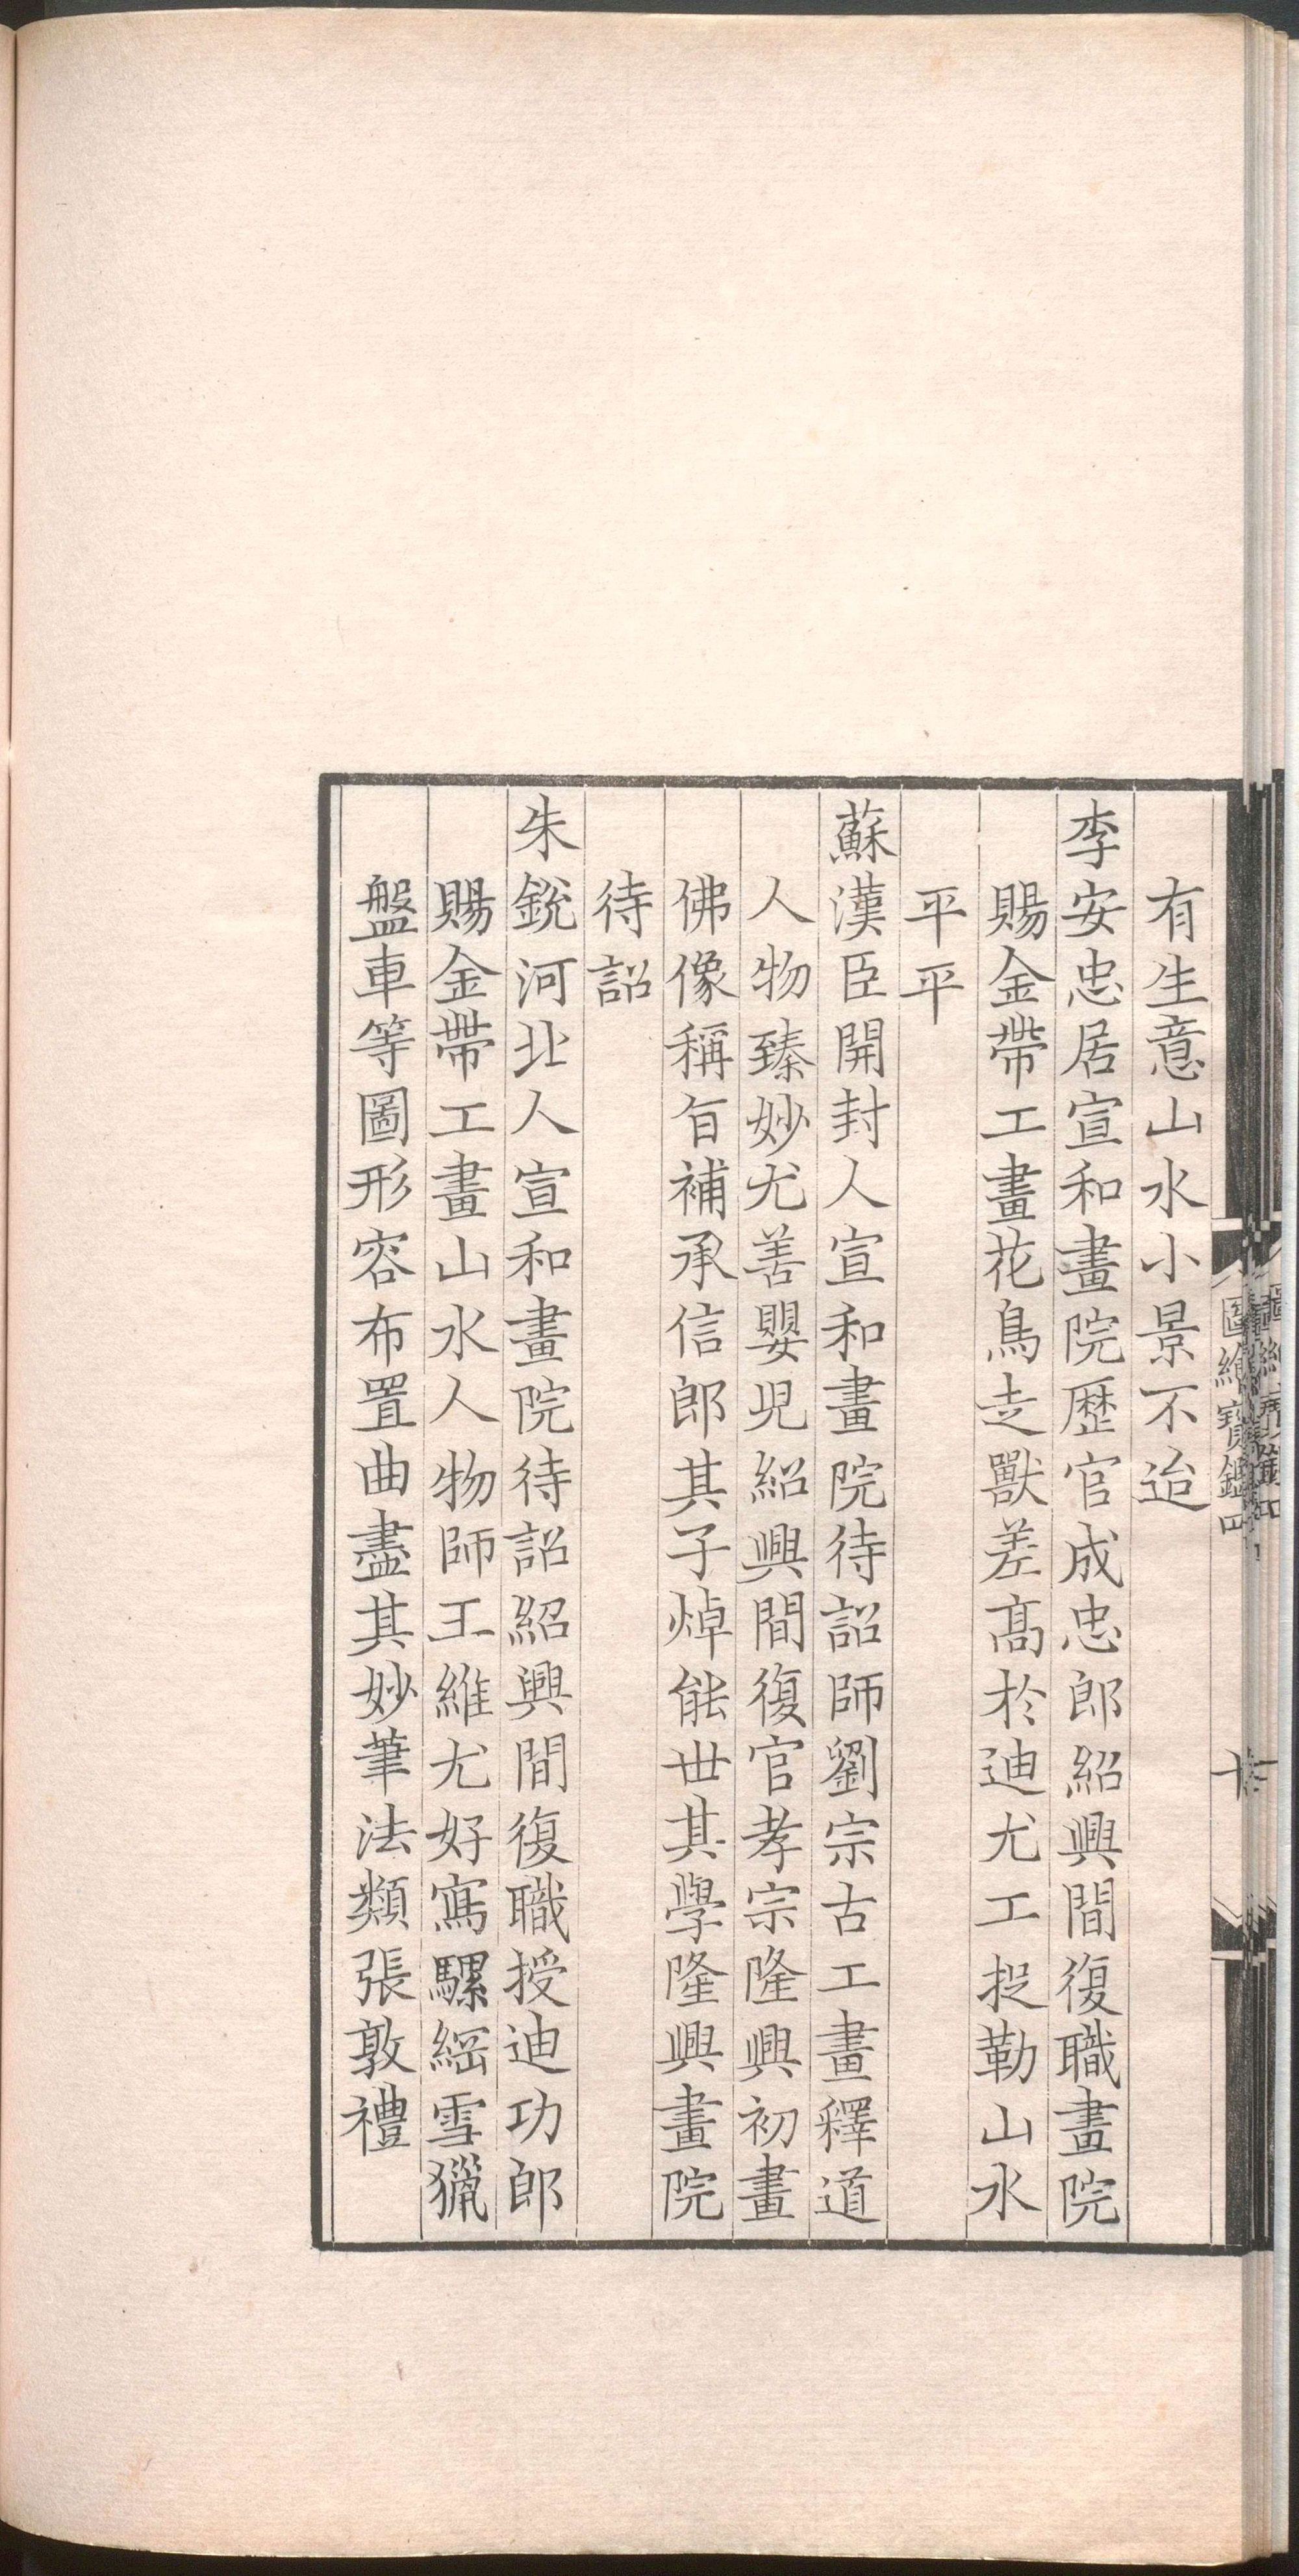 有生意山水小景不迨
李安忠居宣和畫院歷官成忠郎紹興間復職畫院
賜金帶工畫花鳥走獸差髙於迪尤工捉勒山水
平平
蘇漢臣開封人宣和畫院待詔師劉宗古工畫釋道
人物臻妙尤善嬰兒紹興間復官孝宗隆興初畫
佛像稱旨補承信郎其子焯能世其學隆興畫院
待詔
朱銳河北人宣和畫院待詔紹興間復職授迪功郎
賜金帶工畫山水人物師王維尤好寫騾綱雪獵
盤車等圖形容布置曲盡其妙筆法類張敦禮
圖繪寶鑑四